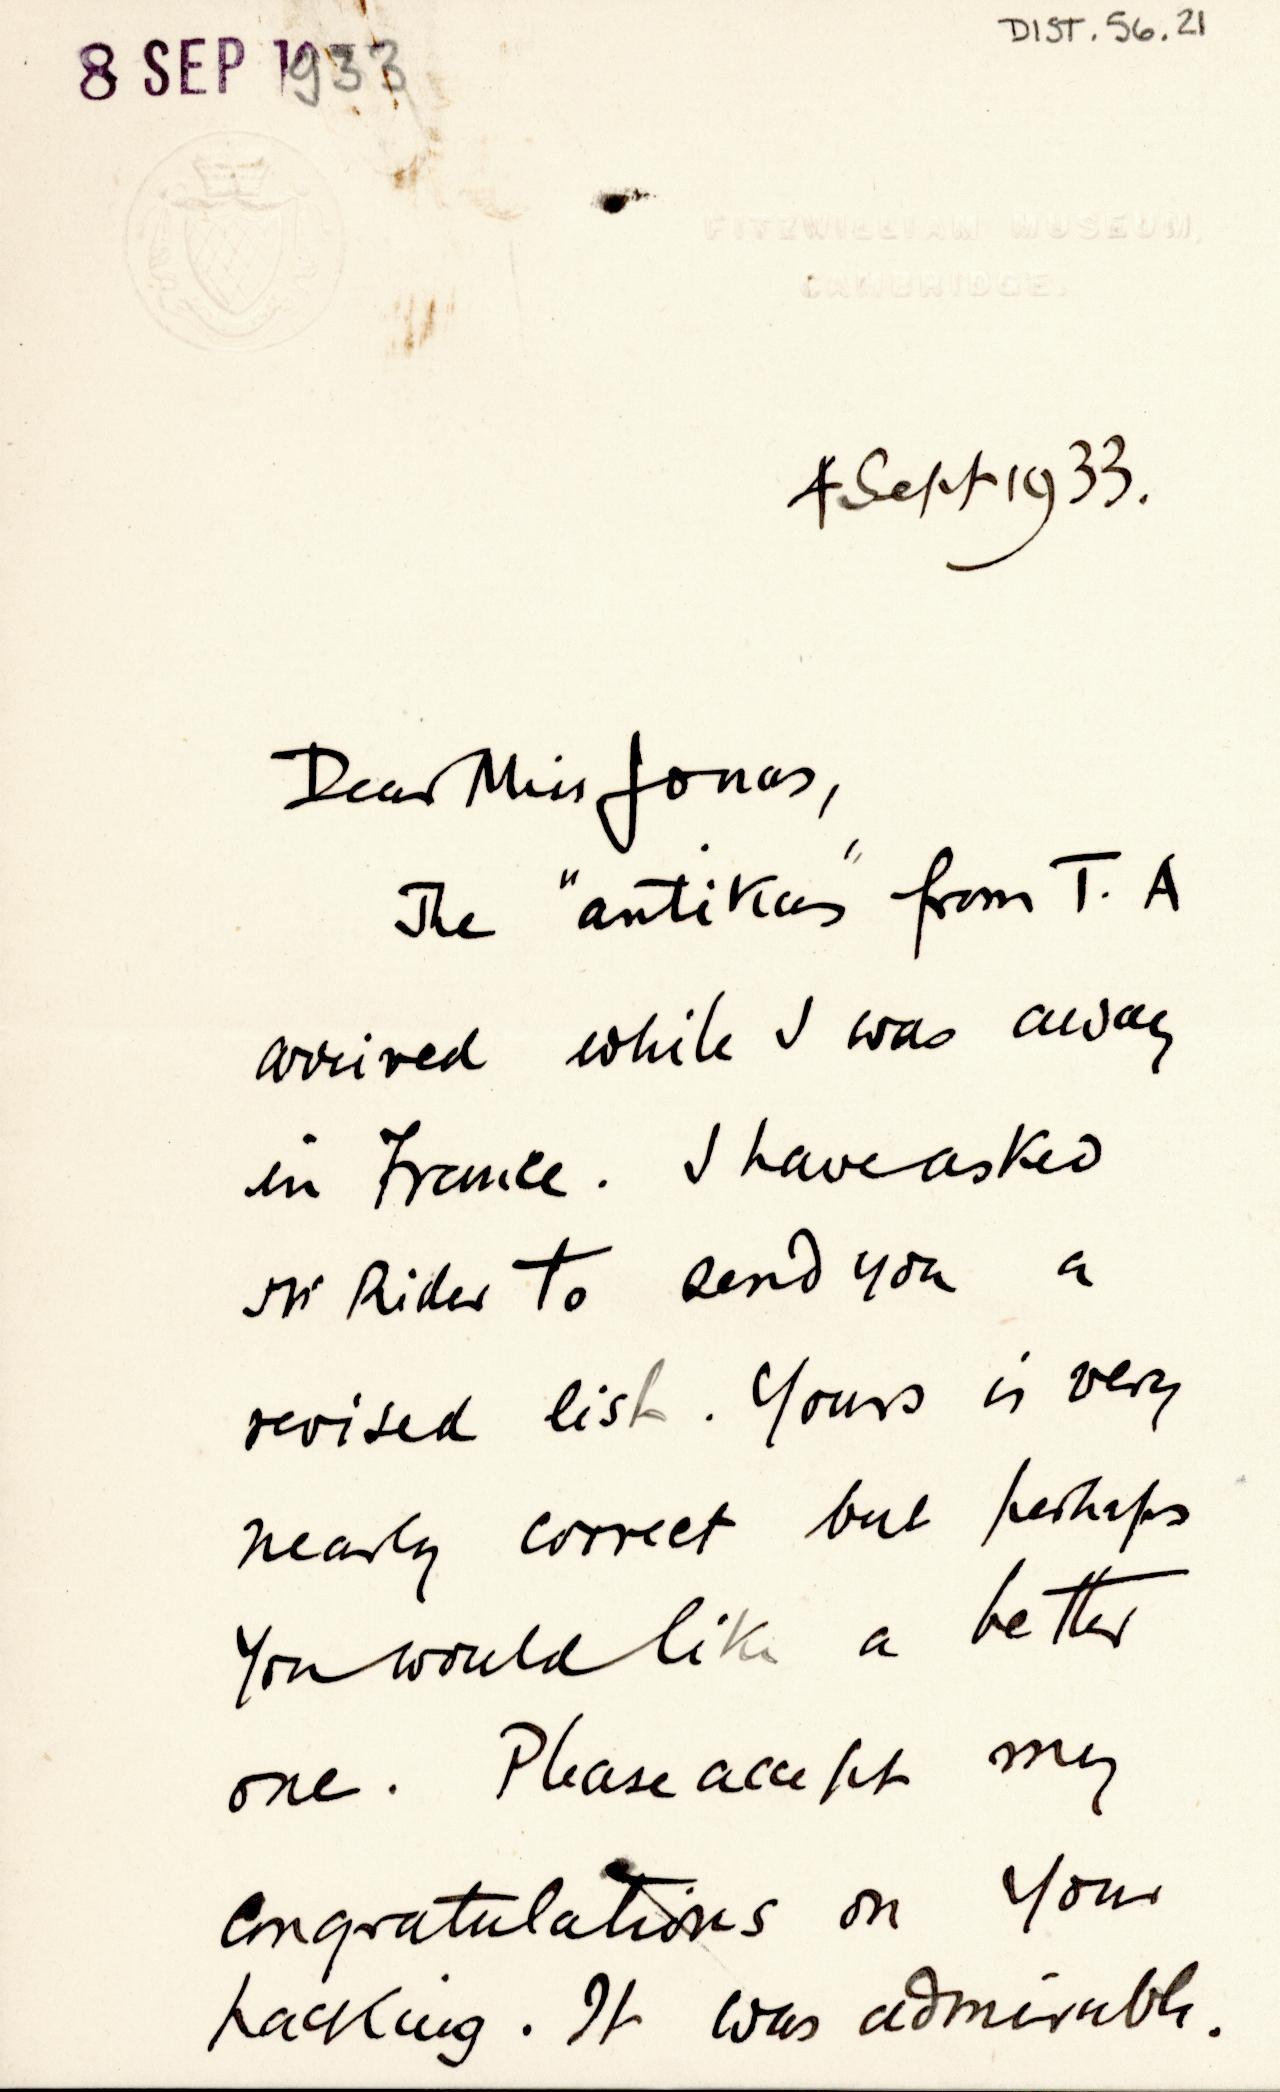 DIST. 56.21
8 SEP 1933
FITZWILLIAM MUSEUM,
CAMBRIDGE.
4 Sept 1933.
Dear Miss Jonas,
The "antikas" from T. A
arrived while I was away
in France. I have asked
Mr Rider to send you a
revised list. Yours is very
nearly correct but perhaps
you would like a better
one. Please accept my
congratulations on your
packing. It was admirable.